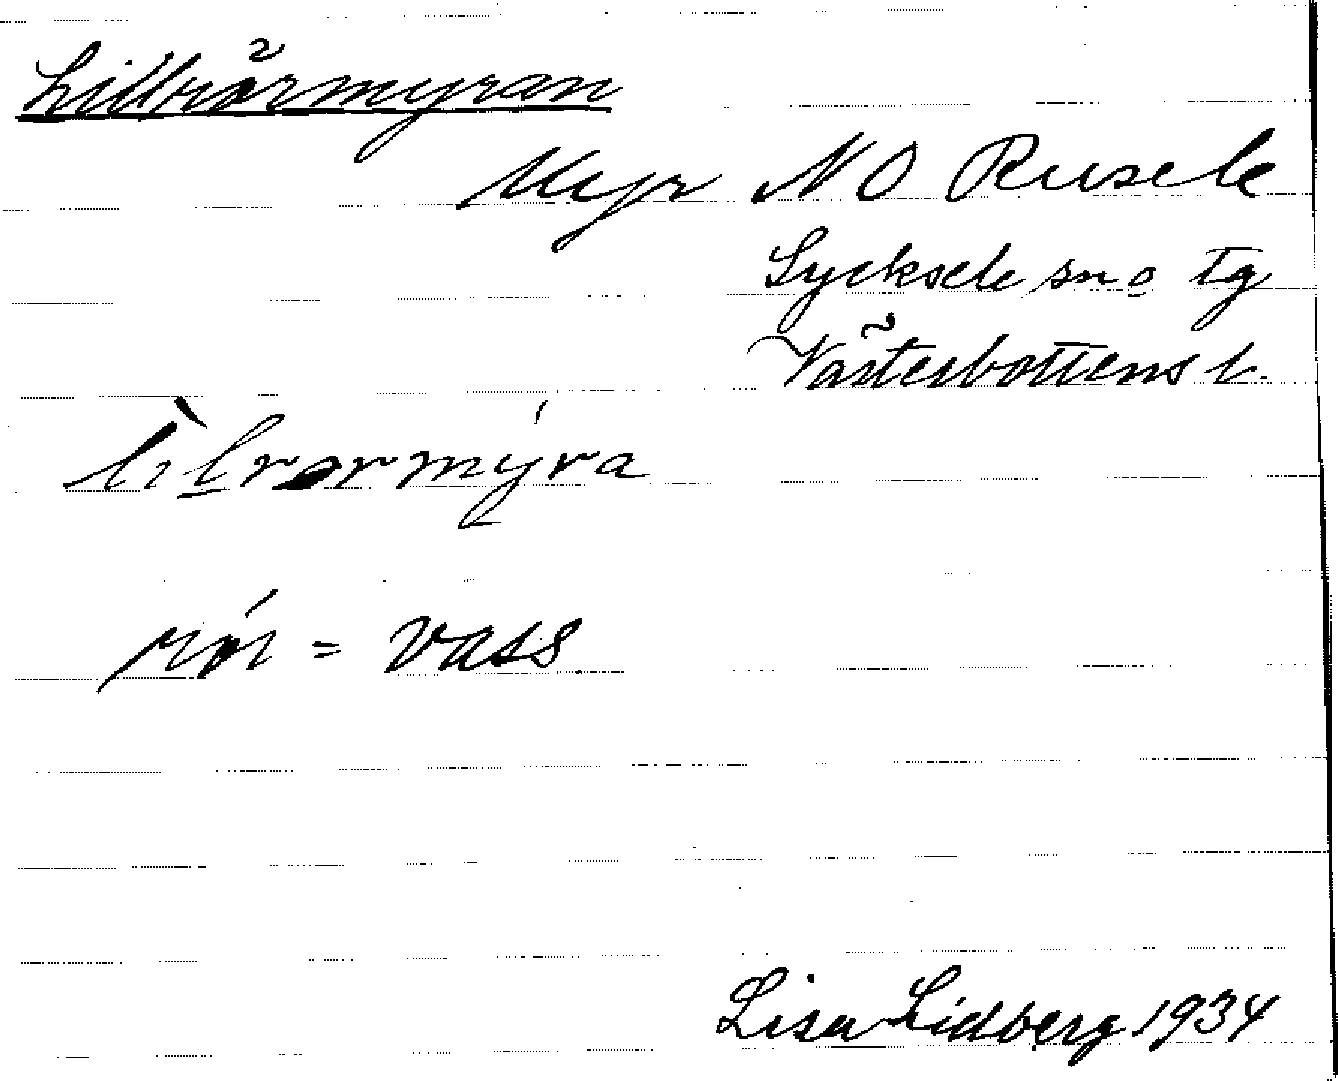 Lillrörmyran
Myr NO Rusele
Lycksele sn o tg
Västerbottens l.
lìlrørmýra
rör = vass
Lisa Lidberg 1934